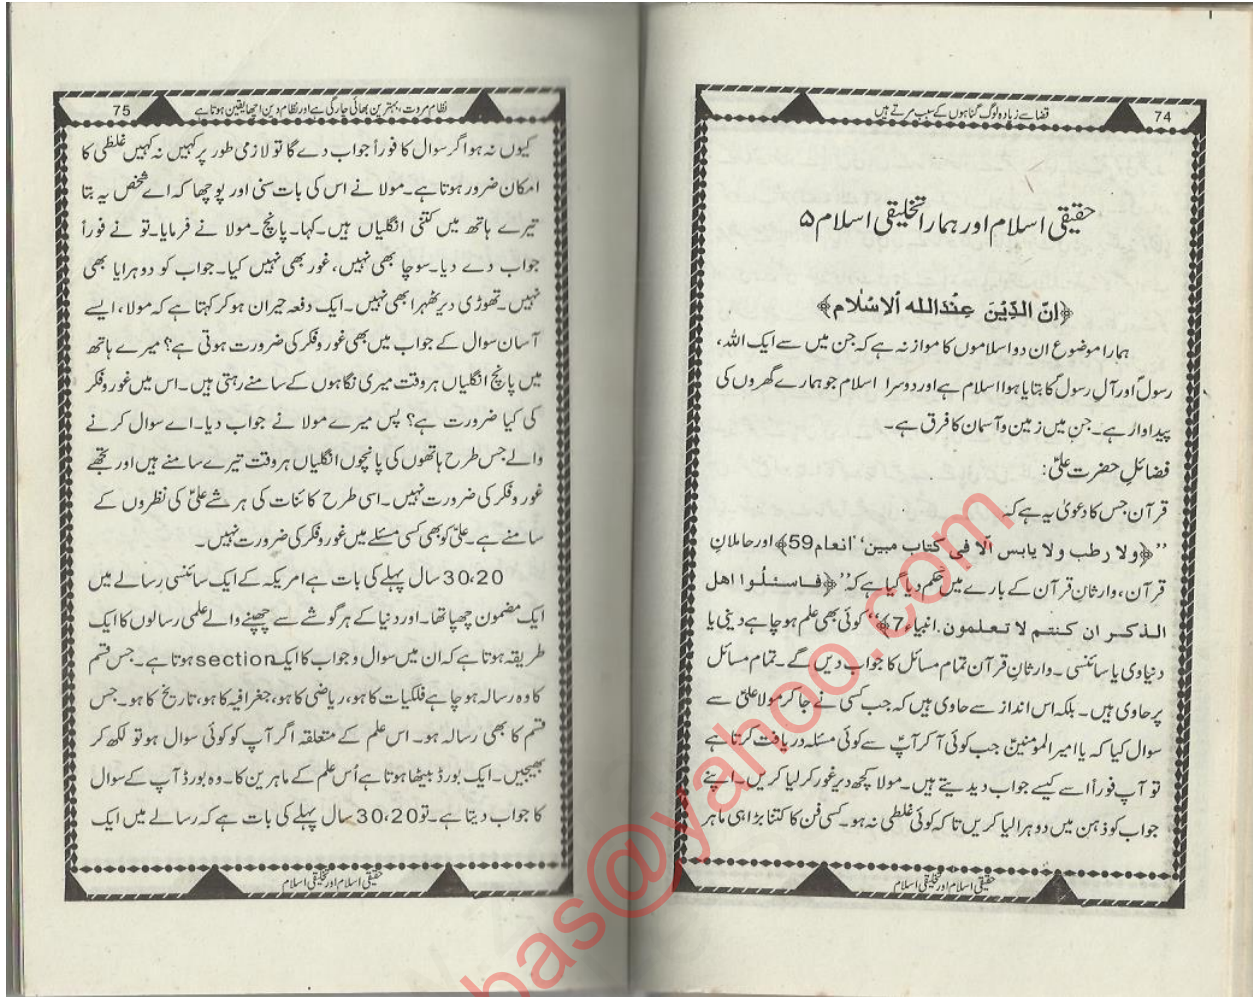 74
قضا سے زیادہ لوگ گناہوں کے سبب مرتے ہیں
حقیقی اسلام اور ہمارا تخلیقی اسلام ۵
﴿انّ الدِّیْنَ عِنْدَالله الاسْلام﴾
ہمارا موضوع ان دو اسلاموں کا موازنہ ہے کہ جن میں سے ایک اللہ،
رسولؐ اور آلِ رسولؐ کا بتایا ہوا اسلام ہے اور دوسرا اسلام جو ہمارے گھروں کی
پیداوار ہے۔ جن میں زمین و آسمان کا فرق ہے۔
فضائلِ حضرت علیؑ:
قرآن جس کا دعویٰ یہ ہے کہ
’’﴿ولا رطب ولا یابس الّا فی کتاب مبین‘‘ انعام 59﴾ اور حاملانِ
قرآن، وارثانِ قرآن کے بارے میں حکم دیا گیا ہے کہ ’’﴿فاسئلُوا اهل
الذکر ان کنتم لا تعلمون. انبیاء 7﴾‘‘ کوئی بھی علم ہو چاہے دینی یا
دنیاوی یا سائنسی۔ وارثانِ قرآن تمام مسائل کا جواب دیں گے۔ تمام مسائل
پر حاوی ہیں۔ بلکہ اس انداز سے حاوی ہیں کہ جب کسی نے جا کر مولا علیؑ سے
سوال کیا کہ یا امیر المومنینؑ جب کوئی آ کر آپؑ سے کوئی مسئلہ دریافت کرتا ہے
تو آپ فوراً اسے کیسے جواب دیدیتے ہیں۔ مولا کچھ دیر غور کر لیا کریں۔ اپنے
جواب کو ذہن میں دوہرا لیا کریں تا کہ کوئی غلطی نہ ہو۔ کسی فن کا کتنا بڑا ہی ماہر
حقیقی اسلام اور تخلیقی اسلام
75
نظام مروت، بہترین بھائی چارگی ہے اور نظام دین اچھا یقین ہوتا ہے
کیوں نہ ہو اگر سوال کا فوراً جواب دے گا تو لازمی طور پر کہیں نہ کہیں غلطی کا
امکان ضرور ہوتا ہے۔ مولا نے اس کی بات سنی اور پوچھا کہ اے شخص یہ بتا
تیرے ہاتھ میں کتنی انگلیاں ہیں۔ کہا۔ پانچ۔ مولا نے فرمایا۔ تو نے فوراً
جواب دے دیا۔ سوچا بھی نہیں، غور بھی نہیں کیا۔ جواب کو دوہرایا بھی
نہیں۔ تھوڑی دیر ٹھہرا بھی نہیں۔ ایک دفعہ حیران ہو کر کہتا ہے کہ مولا، ایسے
آسان سوال کے جواب میں بھی غور و فکر کی ضرورت ہوتی ہے؟ میرے ہاتھ
میں پانچ انگلیاں ہر وقت میری نگاہوں کے سامنے رہتی ہیں۔ اس میں غور و فکر
کی کیا ضرورت ہے؟ پس میرے مولا نے جواب دیا۔ اے سوال کرنے
والے جس طرح ہاتھوں کی پانچوں انگلیاں ہر وقت تیرے سامنے ہیں اور تجھے
غور و فکر کی ضرورت نہیں۔ اسی طرح کائنات کی ہر شے علیؑ کی نظروں کے
سامنے ہے۔ علیؑ کو بھی کسی مسئلے میں غور و فکر کی ضرورت نہیں۔
30،20 سال پہلے کی بات ہے امریکہ کے ایک سائنسی رسالے میں
ایک مضمون چھپا تھا۔ اور دنیا کے ہر گوشے سے چھپنے والے علمی رسالوں کا ایک
طریقہ ہوتا ہے کہ ان میں سوال و جواب کا ایک section ہوتا ہے۔ جس قسم
کا وہ رسالہ ہو چاہے فلکیات کا ہو، ریاضی کا ہو، جغرافیہ کا ہو، تاریخ کا ہو۔ جس
قسم کا بھی رسالہ ہو۔ اس علم کے متعلقہ اگر آپ کو کوئی سوال ہو تو لکھ کر
بھیجیں۔ ایک بورڈ بیٹھا ہوتا ہے اُس علم کے ماہرین کا۔ وہ بورڈ آپ کے سوال
کا جواب دیتا ہے۔ تو 30،20 سال پہلے کی بات ہے کہ رسالے میں ایک
حقیقی اسلام اور تخلیقی اسلام
bas@yahoo.com